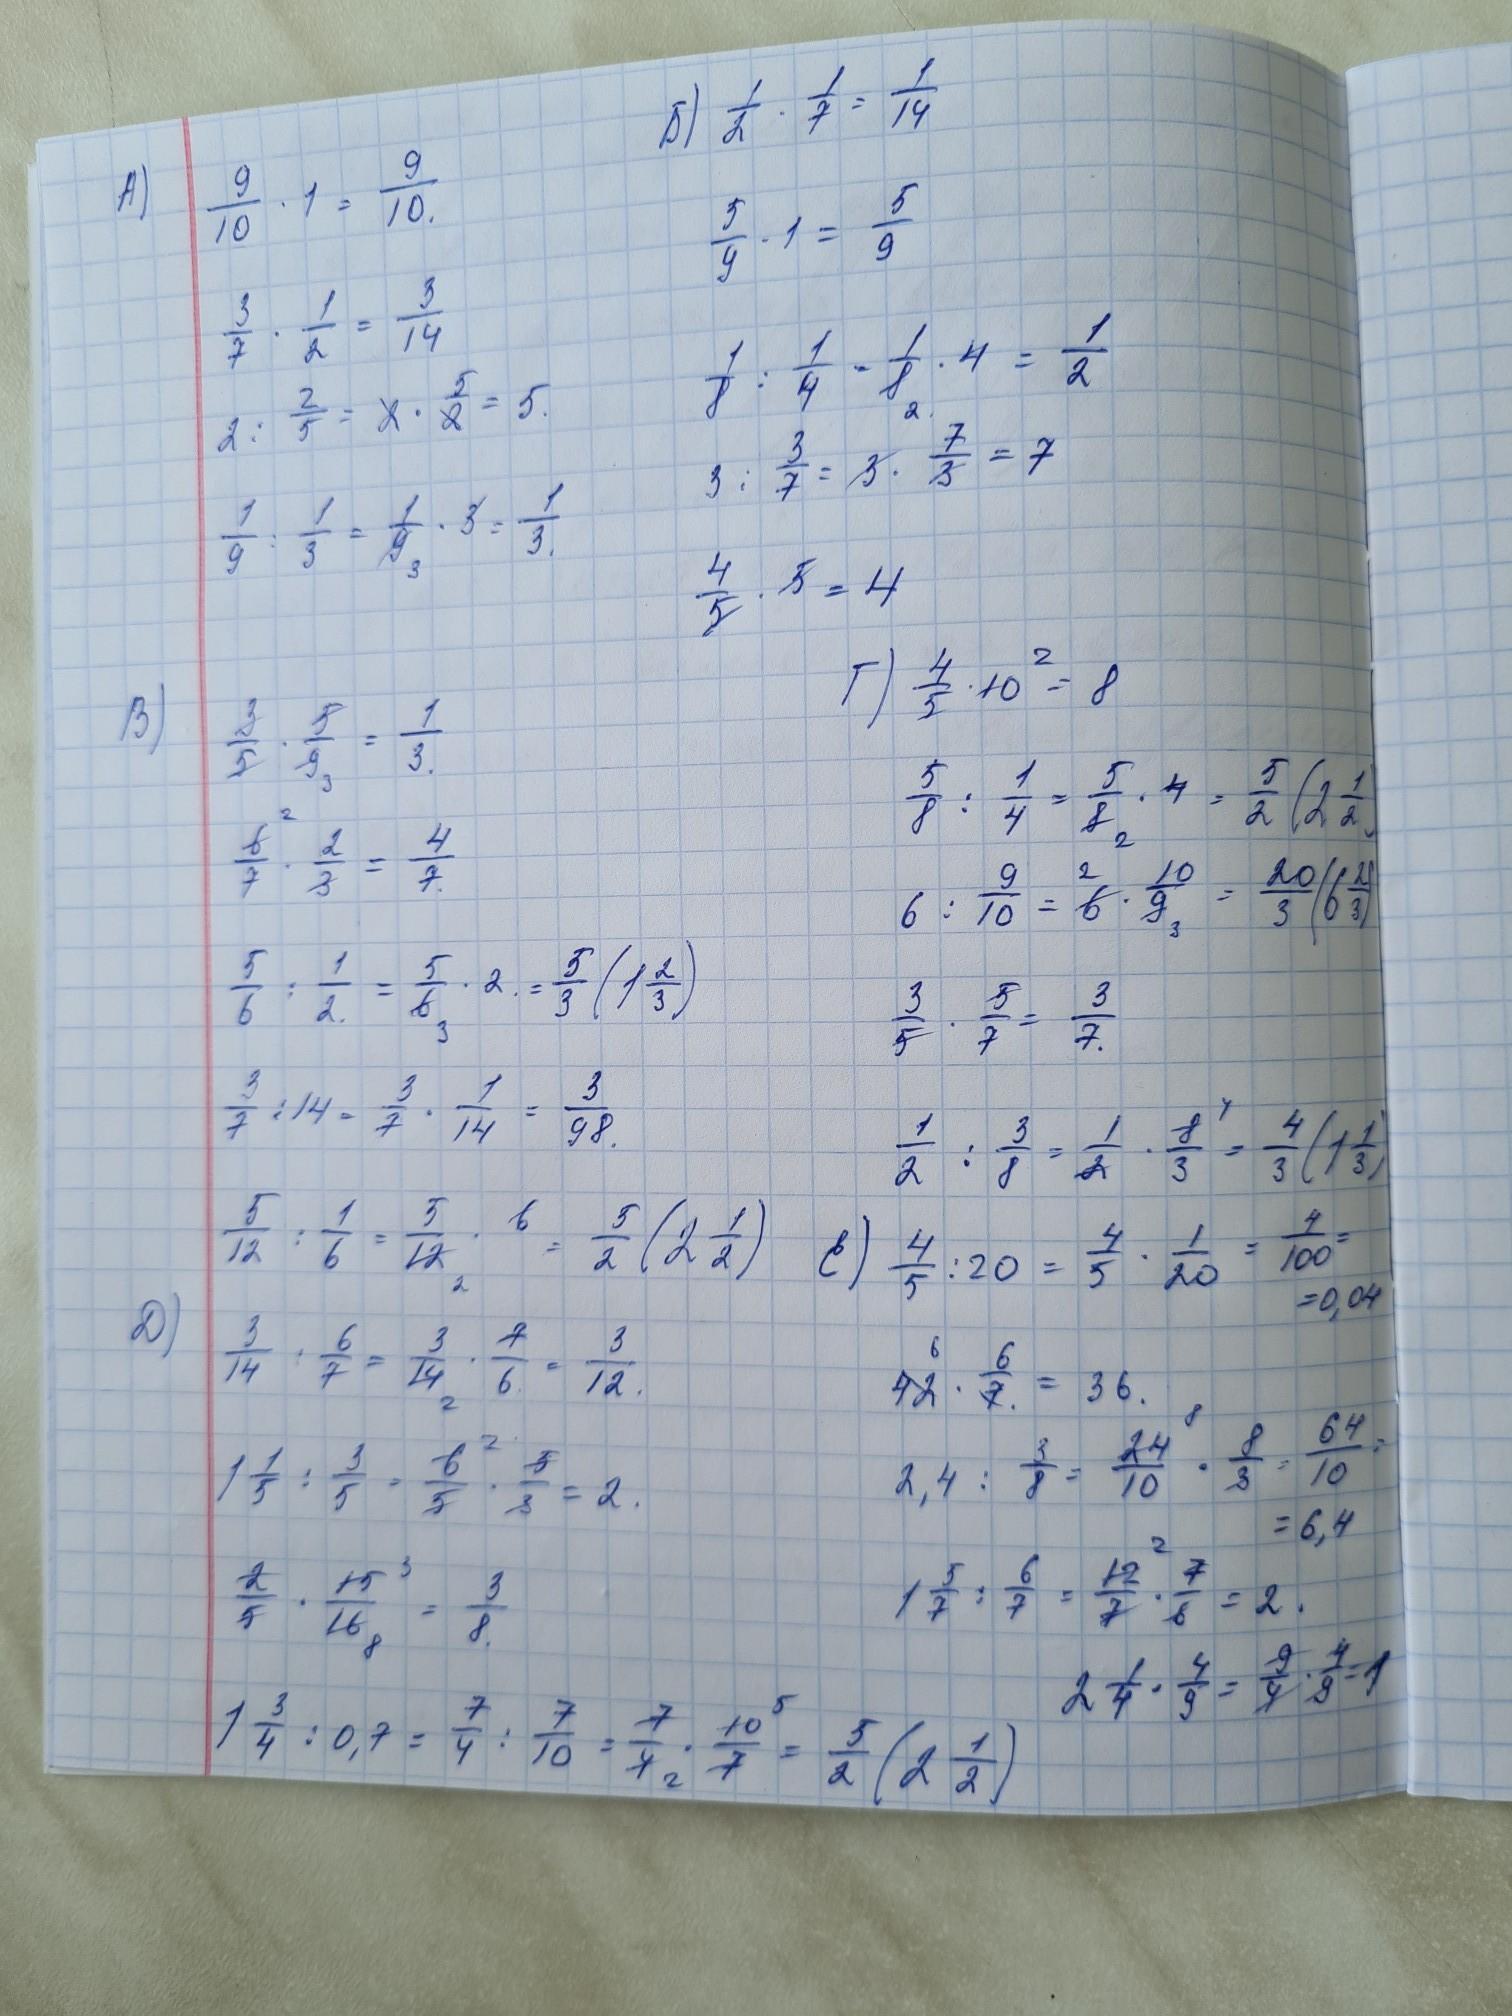 А) 9/10 · 1 = 9/10.
3/7 · 1/2 = 3/14
2 : 2/5 = 2 · 5/2 = 5.
1/9 : 1/3 = 1/9 3 · 3 = 1/3.
Б) 1/2 · 1/7 = 1/14
5/9 · 1 = 5/9
1/8 : 1/4 = 1/8 2. · 4 = 1/2
3 : 3/7 = 3 · 7/3 = 7
4/5 · 5 = 4
В) 3/5 · 5/9 3 = 1/3.
6/7 2 · 2/3 = 4/7.
5/6 : 1/2. = 5/6 3 · 2. = 5/3 (1 2/3)
3/7 : 14 = 3/7 · 1/14 = 3/98.
5/12 : 1/6 = 5/12 2 · 6 = 5/2 (2 1/2)
Г) 4/5 · 10 2 = 8
5/8 : 1/4 = 5/8 2 · 4 = 5/2 (2 1/2)
6 : 9/10 = 2 6 · 10/9 3 = 20/3 (6 2/3)
3/5 · 5/7 = 3/7.
1/2 : 3/8 = 1/2 · 8/3 4 = 4/3 (1 1/3)
Д) 3/14 : 6/7 = 3/14 2 · 7/6 = 3/12.
1 1/5 : 3/5 = 6/5 2 · 5/3 = 2.
2/5 · 15/16 3 8 = 3/8.
1 3/4 : 0,7 = 7/4 : 7/10 = 7/4 2 · 10/7 5 = 5/2 (2 1/2)
Е) 4/5 : 20 = 4/5 · 1/20 = 4/100 =
= 0,04
42 6 · 6/7. = 36.
2,4 : 3/8 = 24/10 8 · 8/3 = 64/10 =
= 6,4
1 5/7 : 6/7 = 12/7 2 · 7/6 = 2.
2 1/4 · 4/9 = 9/4 · 4/9 = 1